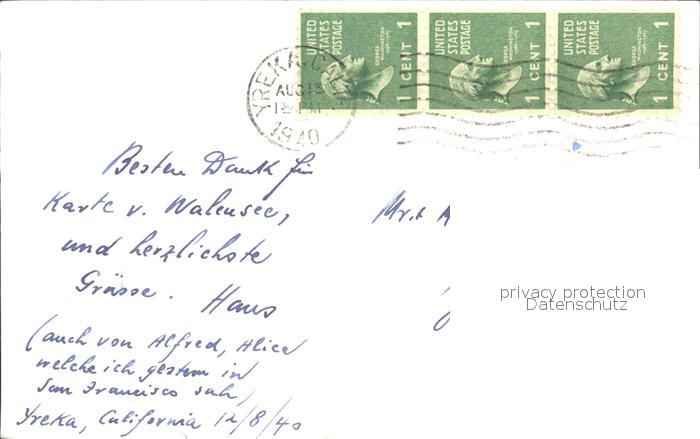 UNITED STATES POSTAGE
GEORGE WASHINGTON
1 CENT
UNITED STATES POSTAGE
GEORGE WASHINGTON
1 CENT
UNITED STATES POSTAGE
GEORGE WASHINGTON
1 CENT
YREKA, CALIF.
AUG 13
1940
Besten Dank für
Karte v. Walensee,
und herzlichste
Grüsse. Hans
(auch von Alfred, Alice
welche ich gestern in
San Francisco sah)
Yreka, California 12/8/40
privacy protection
Datenschutz